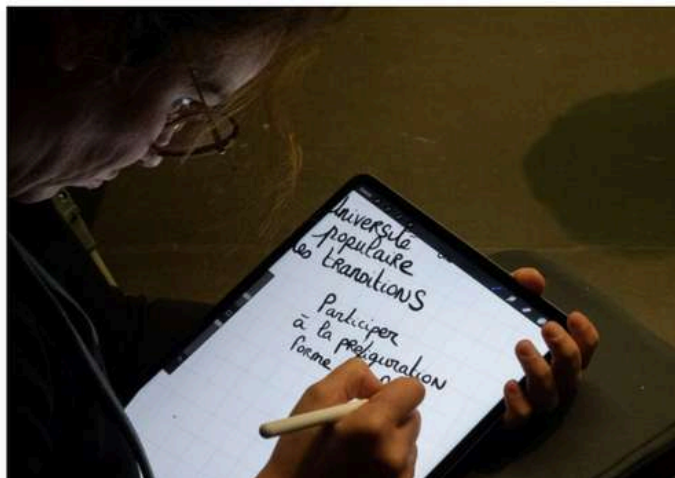 Université
populaire
des transitions
Participer
à la préfiguration
forme